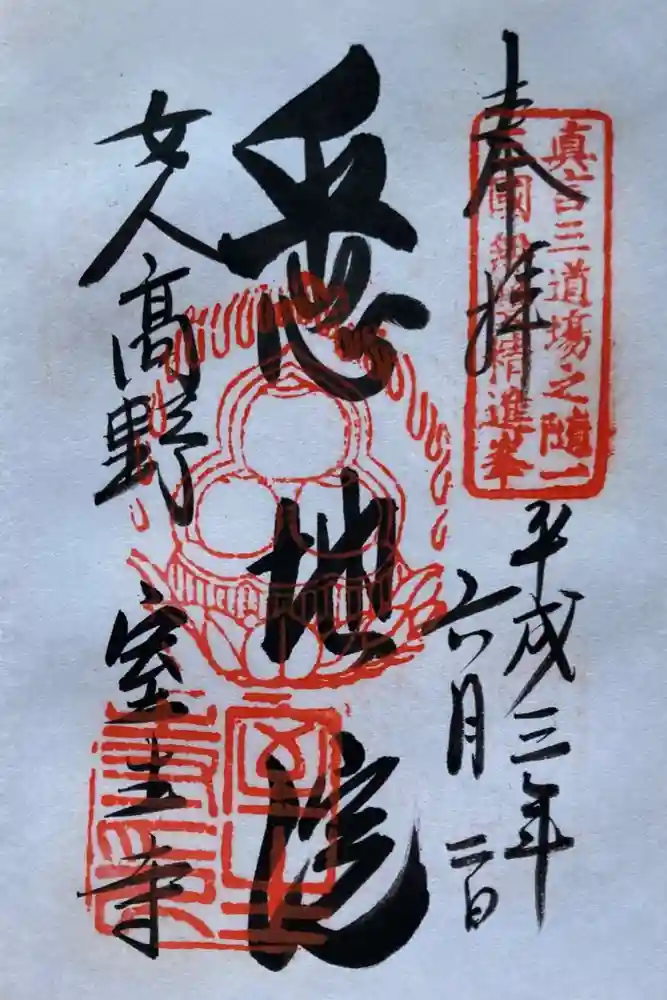 奉拝
真言三道場之隨一
國無 精進峯
平成三年
六月二日
悉地院
女人高野
室生寺